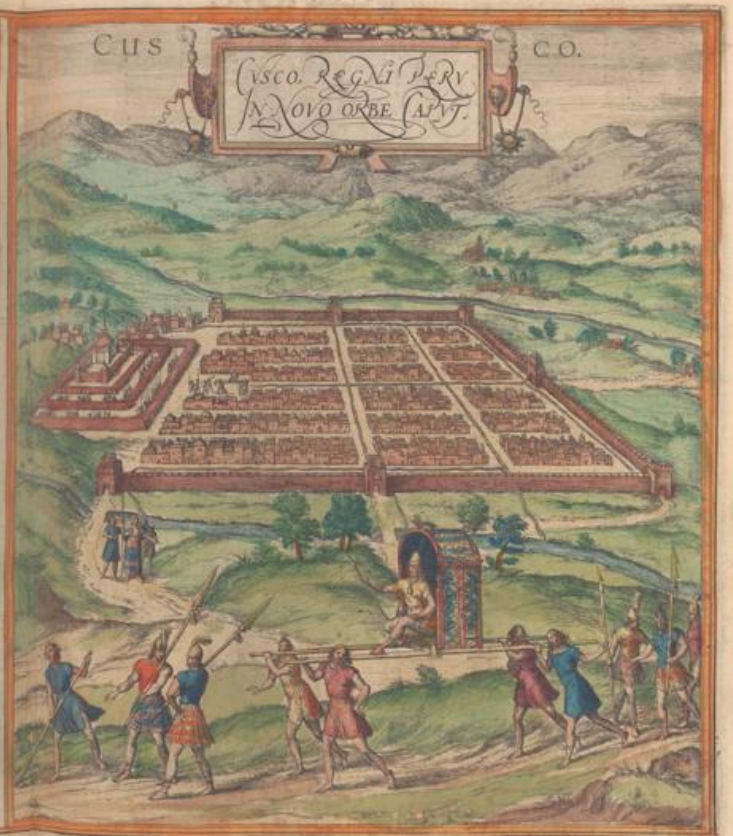 CUS CO.
CVSCO, REGNI PERV
IN NOVO ORBE CAPVT.